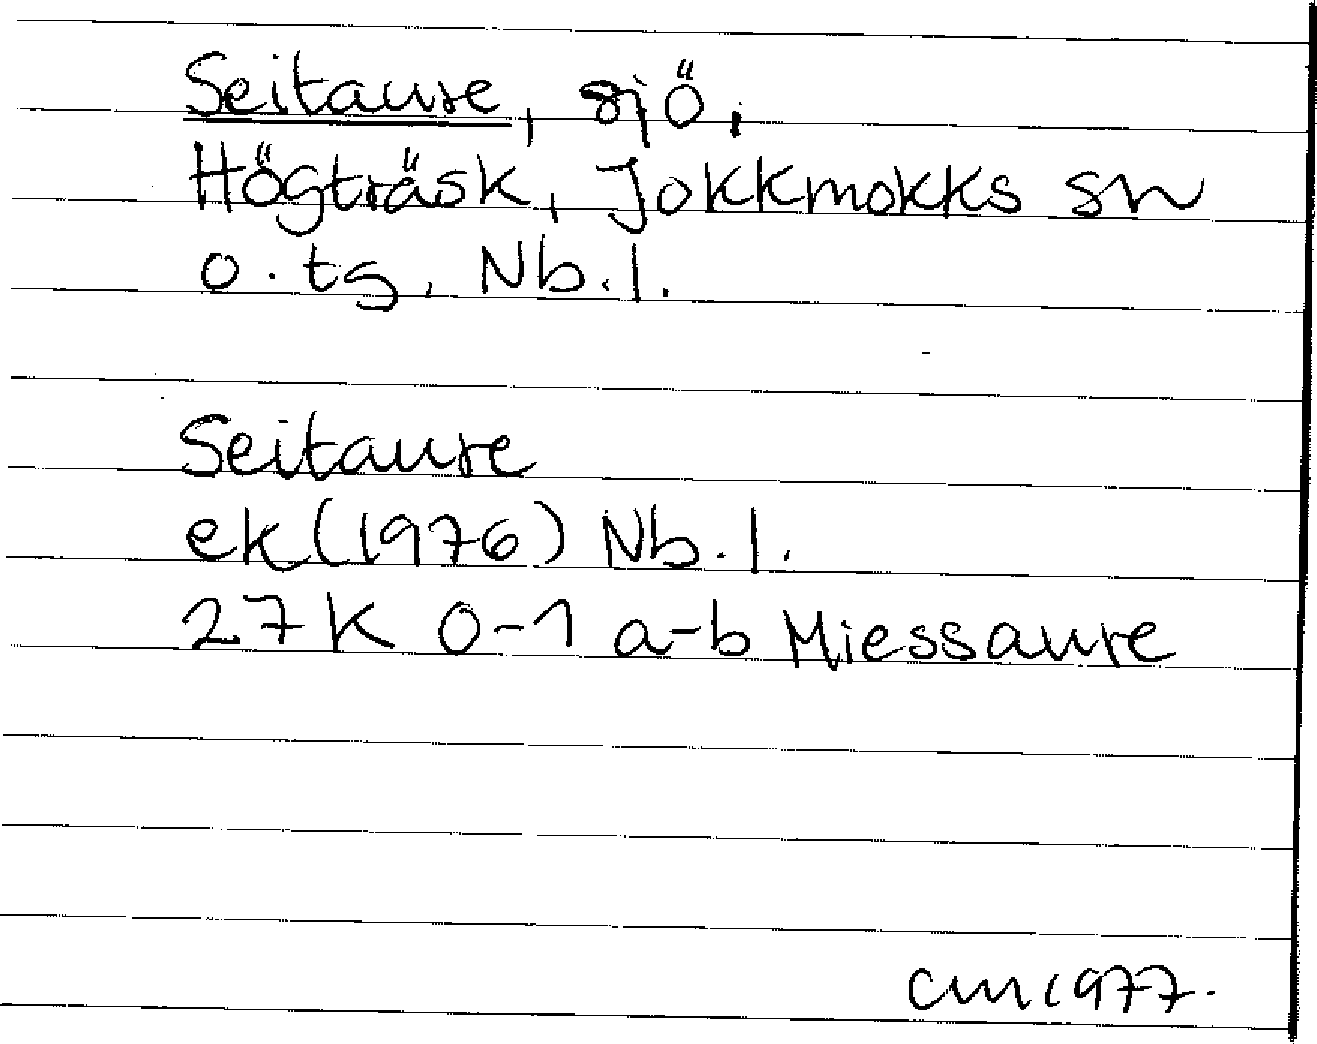 Seitaure, sjö,
Högträsk, Jokkmokks sn
o. tg, Nb.l.
Seitaure
ek (1976) Nb.l.
27K 0-1 a-b Miessaure
CM 1977.